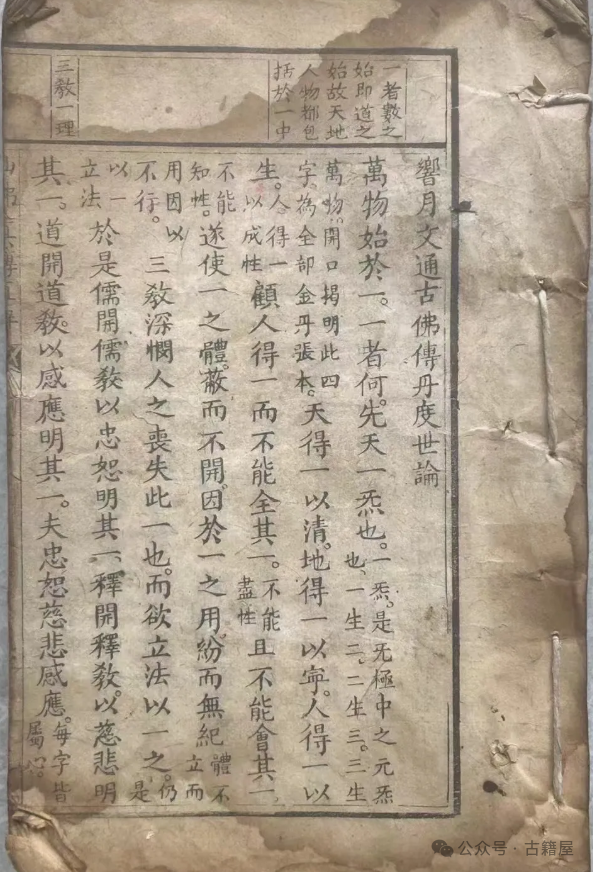 一者數之
始即道之
始故天地
人物都包
括於一中
三教一理
響月文通古佛傳丹度世論
萬物始於一。一者何。先天一炁也。一炁。是旡極中之元炁也。一生二。二生三。三生
萬物。開口揭明此四字。為全部金丹張本。天得一以清。地得一以寧。人得一以
生。人得一以成性顧人得一而不能全其一。不能盡性且不能會其一
不能知性。遂使一之體。蔽而不開。因於一之用。紛而無紀體不立而
用因以不行。三教深憫人之喪失此一也。而欲立法以一之。仍是
以一立法於是儒開儒教以忠恕明其一。釋開釋教。以慈悲明
其一。道開道教。以感應明其一。夫忠恕慈悲感應。每字皆屬心。
公众号·古籍屋